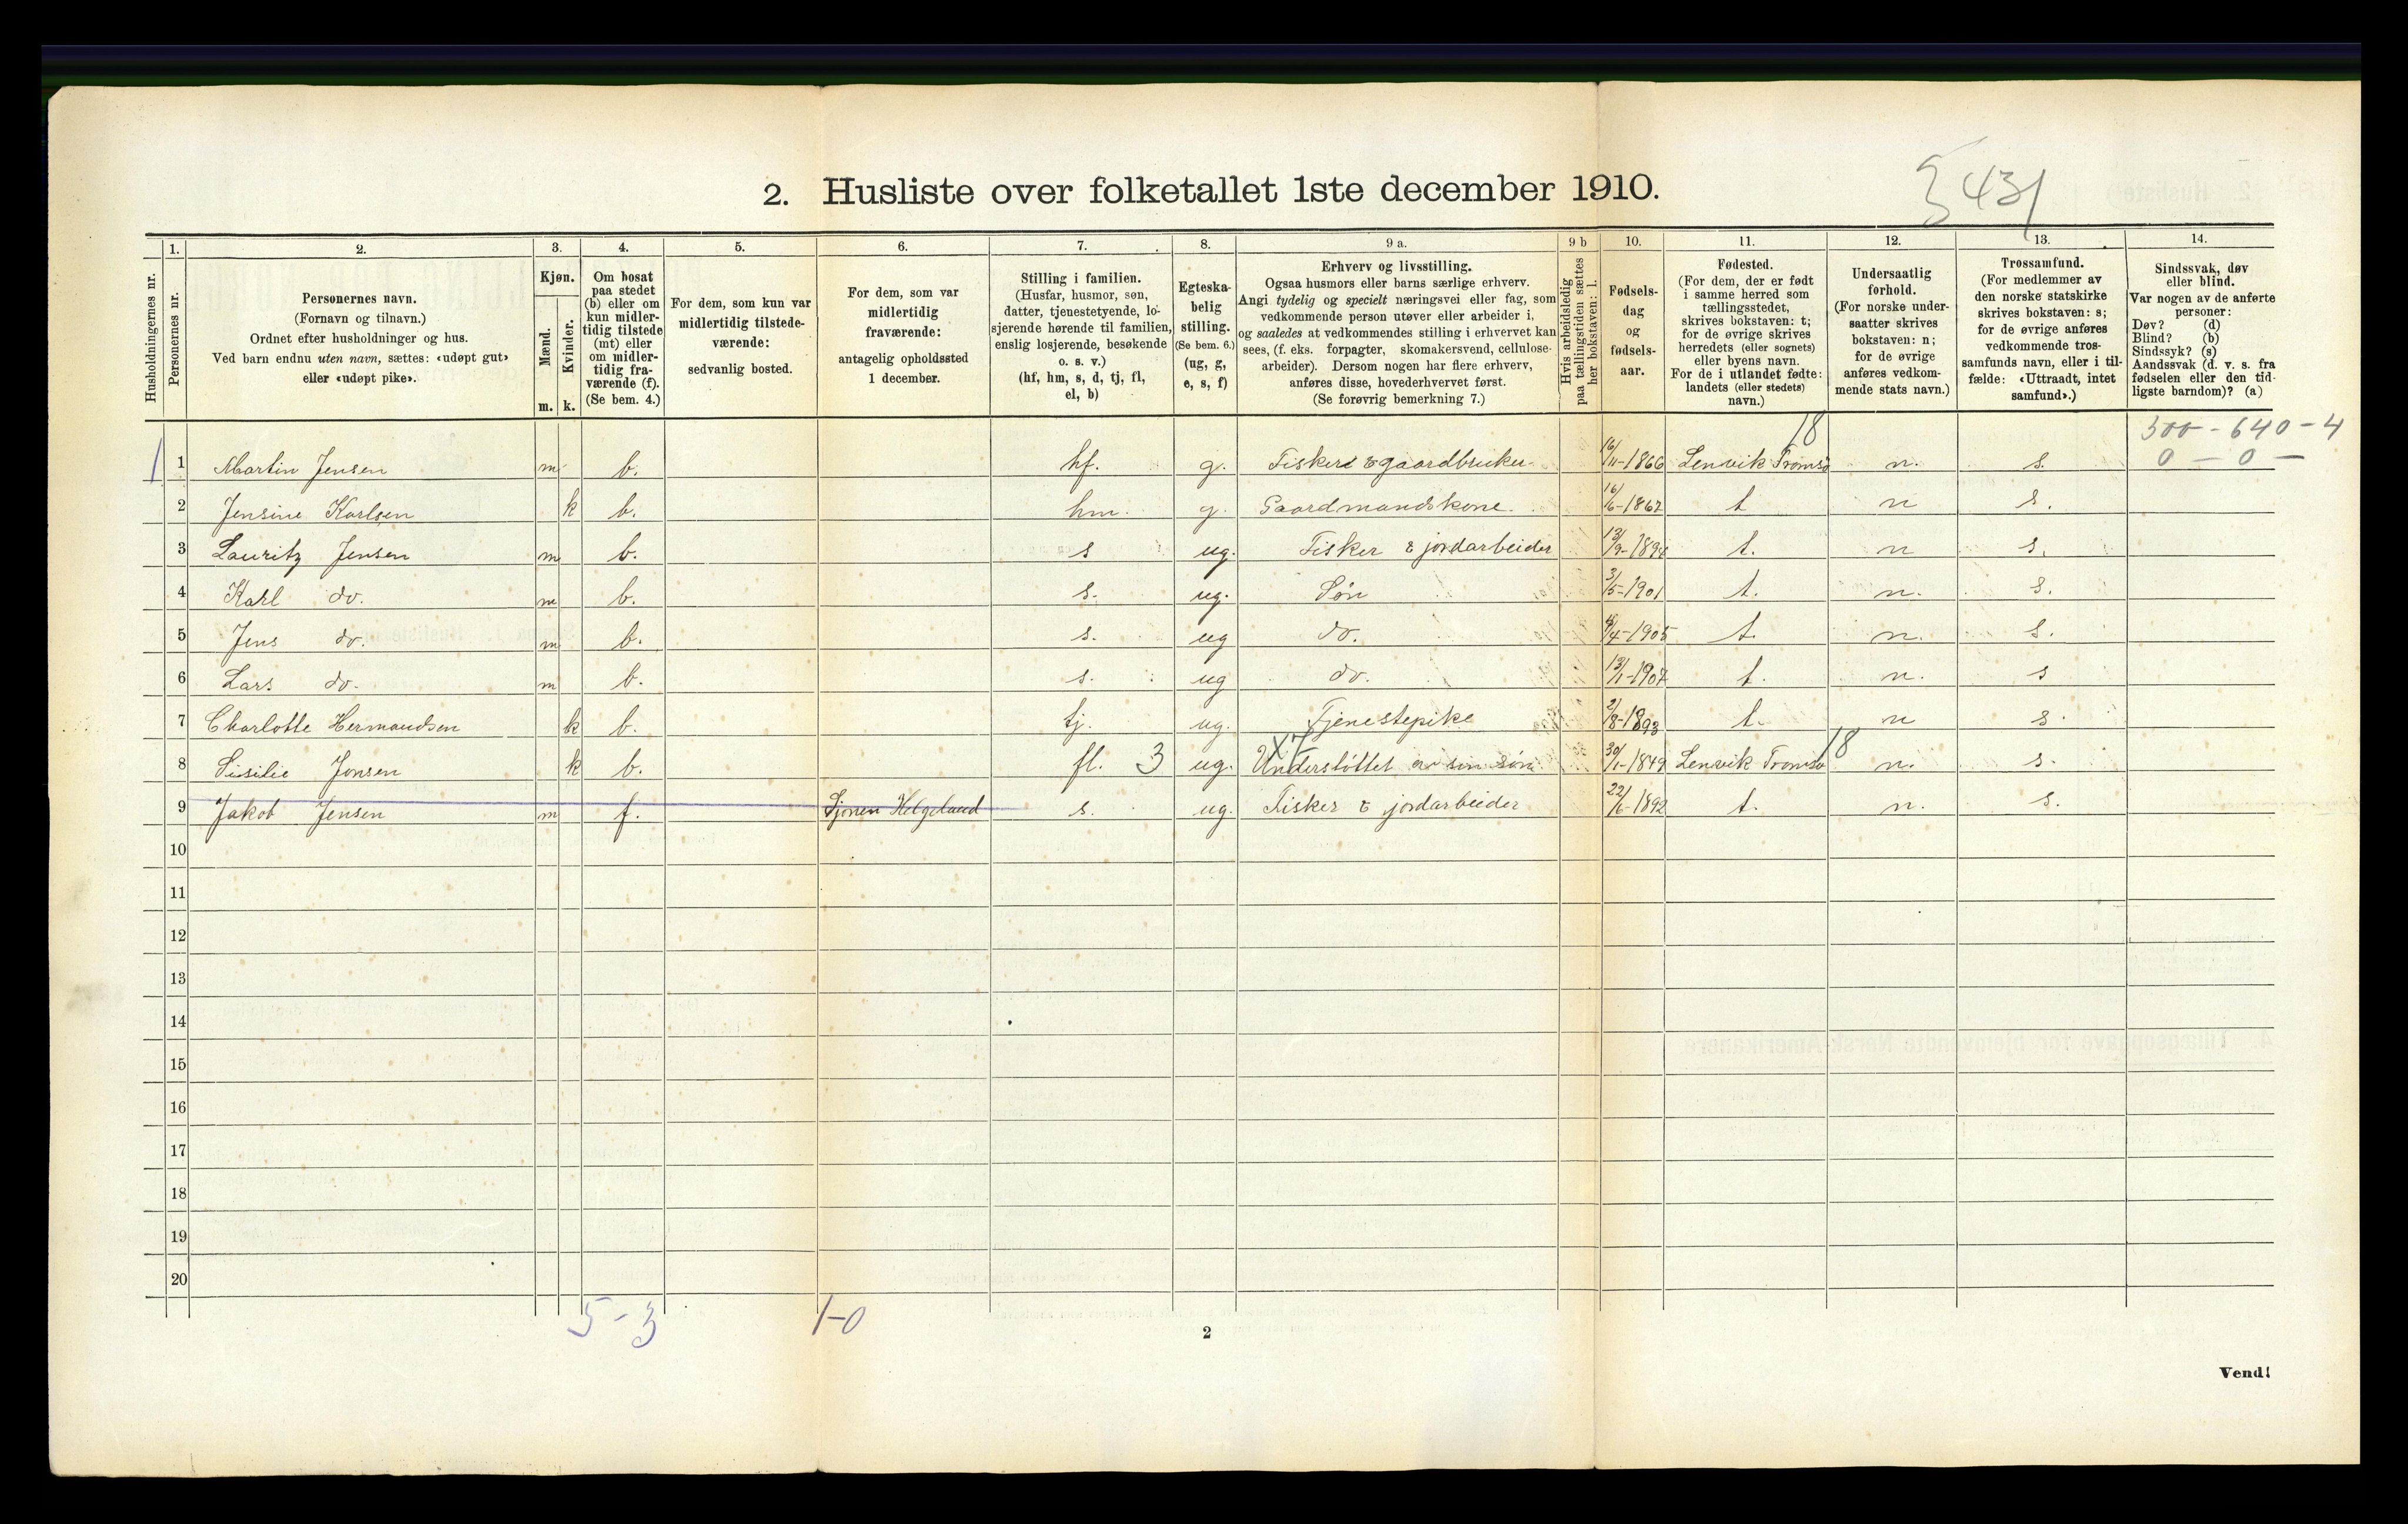 2. Husliste over folketallet 1ste december 1910.
1. 2. 3. 4. 5. 6. 7. 8. 9 a. 9 b 10. 11. 12. 13. 14.
Husholdningernes nr.
Personernes nr.
Personernes navn.
(Fornavn og tilnavn.)
Ordnet efter husholdninger og hus.
Ved barn endnu uten navn, sættes: «udøpt gut»
eller «udøpt pike».
Kjøn.
Mænd.
Kvinder.
m. k.
Om bosat
paa stedet
(b) eller om
kun midler-
tidig tilstede
(mt) eller
om midler-
tidig fra-
værende (f).
(Se bem. 4.)
For dem, som kun var
midlertidig tilstede-
værende:
sedvanlig bosted.
For dem, som var
midlertidig
fraværende:
antagelig opholdssted
1 december.
Stilling i familien.
(Husfar, husmor, søn,
datter, tjenestetyende, lo-
sjerende hørende til familien,
enslig losjerende, besøkende
o. s. v.)
(hf, hm, s, d, tj, fl,
el, b)
Egteska-
belig
stilling.
(Se bem. 6.)
(ug, g,
e, s, f)
Erhverv og livsstilling.
Ogsaa husmors eller barns særlige erhverv.
Angi tydelig og specielt næringsvei eller fag, som
vedkommende person utøver eller arbeider i,
og saaledes at vedkommendes stilling i erhvervet kan
sees, (f. eks. forpagter, skomakersvend, cellulose-
arbeider). Dersom nogen har flere erhverv,
anføres disse, hovederhvervet først.
(Se forøvrig bemerkning 7.)
Hvis arbeidsledig
paa tællingstiden sættes
her bokstaven: l.
Fødsels-
dag
og
fødsels-
aar.
Fødested.
(For dem, der er født
i samme herred som
tællingsstedet,
skrives bokstaven: t;
for de øvrige skrives
herredets (eller sognets)
eller byens navn.
For de i utlandet fødte:
landets (eller stedets)
navn.)
Undersaatlig
forhold.
(For norske under-
saatter skrives
bokstaven: n;
for de øvrige
anføres vedkom-
mende stats navn.)
Trossamfund.
(For medlemmer av
den norske statskirke
skrives bokstaven: s;
for de øvrige anføres
vedkommende tros-
samfunds navn, eller i til-
fælde: «Uttraadt, intet
samfund».)
Sindssvak, døv
eller blind.
Var nogen av de anførte
personer:
Døv? (d)
Blind? (b)
Sindssyk? (s)
Aandssvak (d. v. s. fra
fødselen eller den tid-
ligste barndom)? (a)
18 500 - 640 - 4
0 - 0 -
1 1 Martin Jensen m b. hf. g. Fisker & gaardbruker 16/11-1866 Lenvik Tromsø n. s.
2 Jensine Karlsen k b. hm. g. Gaardmandskone. 16/6-1867 t n s.
3 Lauritz Jensen m b. s ug. Fisker & jordarbeider t. n s.
4 Karl do. m b. s. ug. Søn 3/5-1901 t. n. s.
5 Jens do. m b. s. ug do. t. n. s.
6 Lars do. m b. s. ug do. 13/1-1907 t. n. s
7 Charlotte Hermandsen k b. tj. ug. Tjenestepike 2/8-1893 t. n s.
8 Sisilie Jonsen k b. fl. 3 ug. X7 Understøttet av sin søn 30/1-1849 Lenvik Tromsø 18 n. s.
9 Jakob Jensen m f. Sjonen Helgeland s. ug. Fisker & jordarbeider 22/6-1892 t. n. s.
10
11
12
13
14
15
16
17
18
19
20
5-3 1-0
2
Vend!